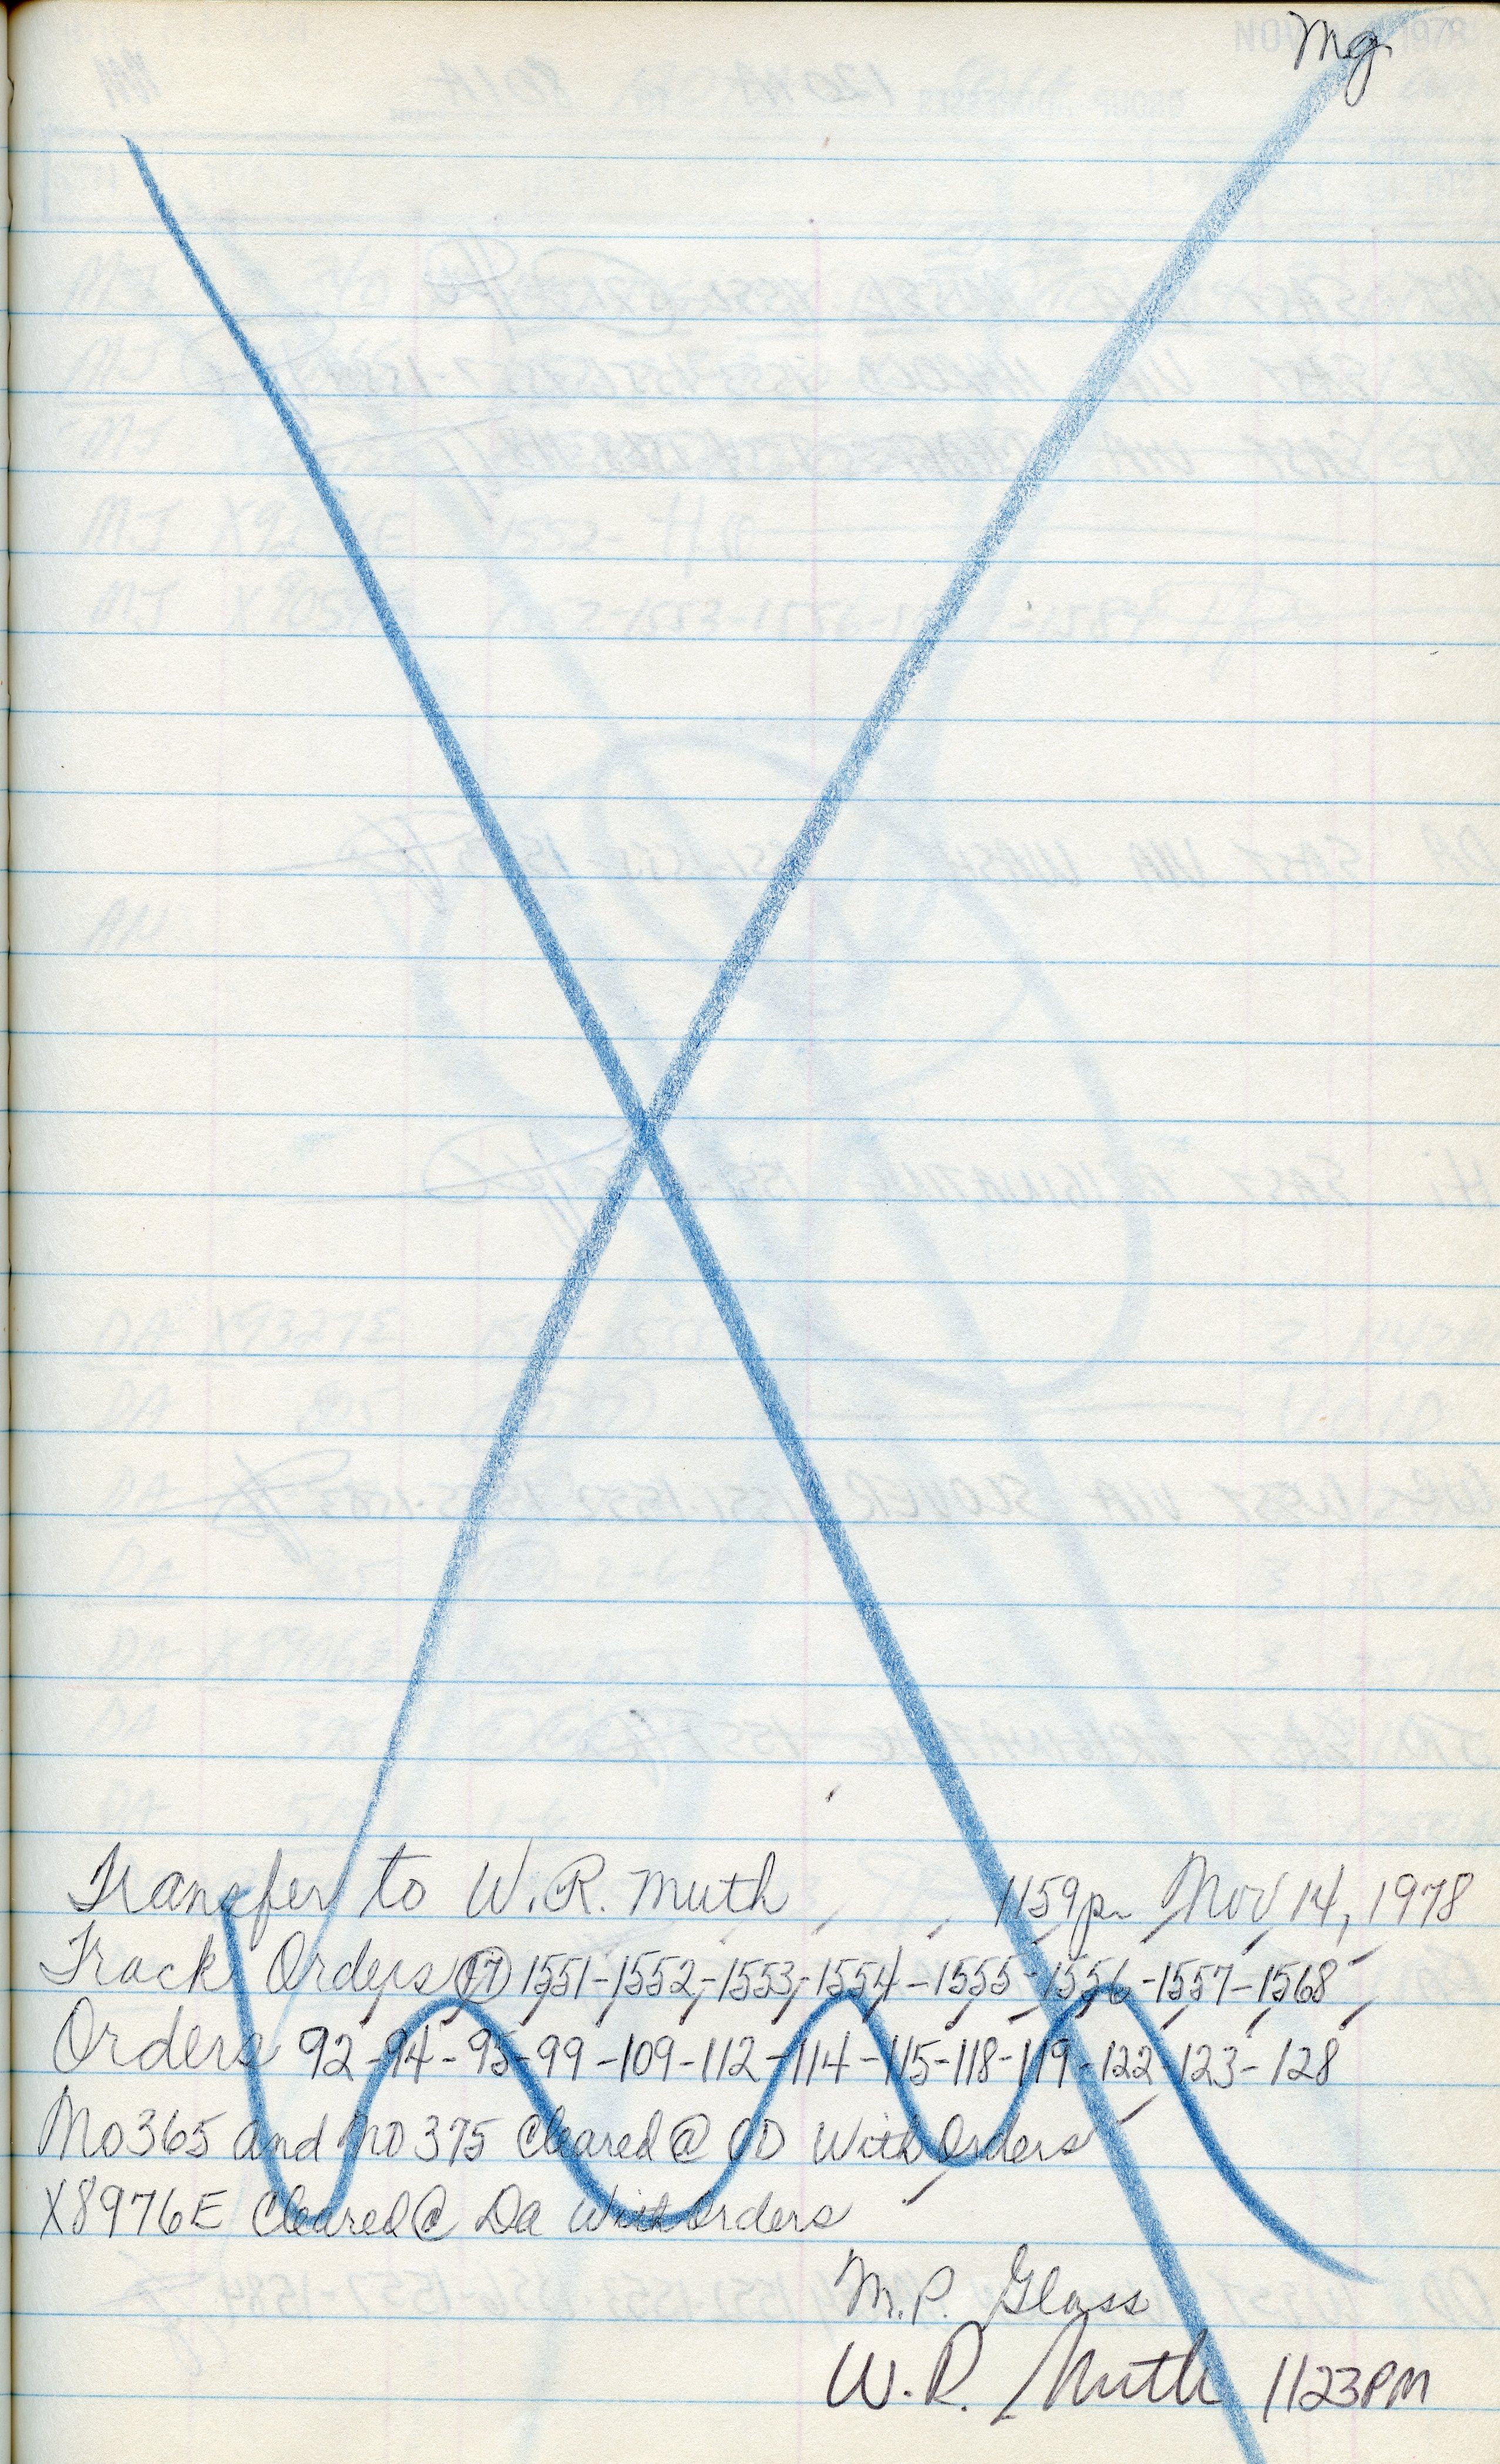 Mg.
Transfer to W.R. Muth 1159p Nov 14, 1978
Track Orders 1551-1552-1553-1554-1555-1556-1557-1568
Orders 92-94-95-99-109-112-114-115-118-119-122-123-128
Mo365 and Mo375 Cleared @ OD With Orders
X8976E Cleared @ Da With Orders
M.P. Glass
W.R. Muth 1123PM